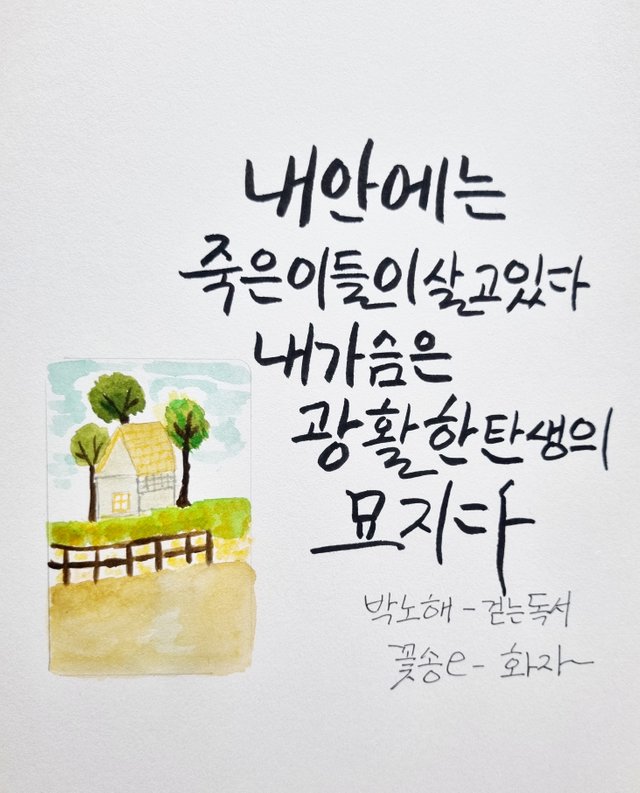 내안에는
죽은이들이살고있다
내가슴은
광활한탄생의
묘지다
박노해 - 걷는독서
꽃송e - 화자~